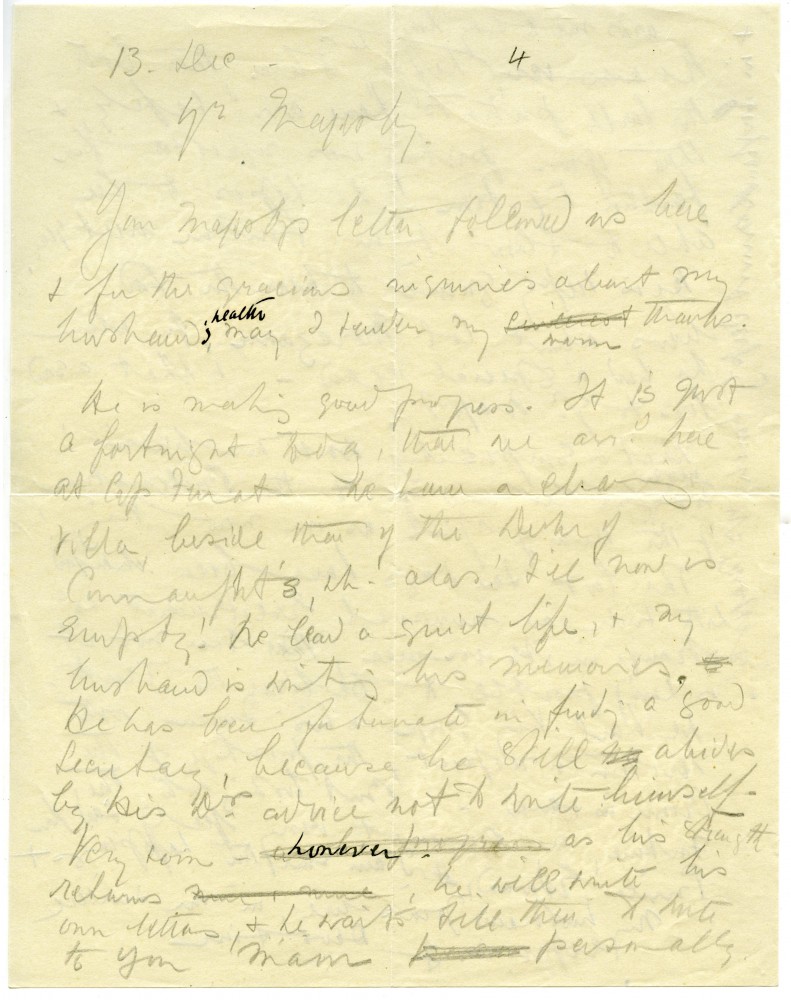 13. Dec - 4
Yr Majesty.
Your Majesty's letter followed us here
& for the gracious inquiries about my
husband's health, may I tender my sincerest warm thanks.
He is making good progress. It is just
a fortnight today, that we arrd here
at Cap Ferrat - We have a charming
villa, beside that of the Duke of
Connaught's, wh. alas! till now is
Empty! We lead a quiet life, & my
husband is writing his memories.
He has been fortunate in finding a good
Secretary, because he still abides
by His Drs advice not to write himself.
Very soon - however - as his strength
returns, he will write his
own letters, & he waits till then to write
to You Ma'am personally.